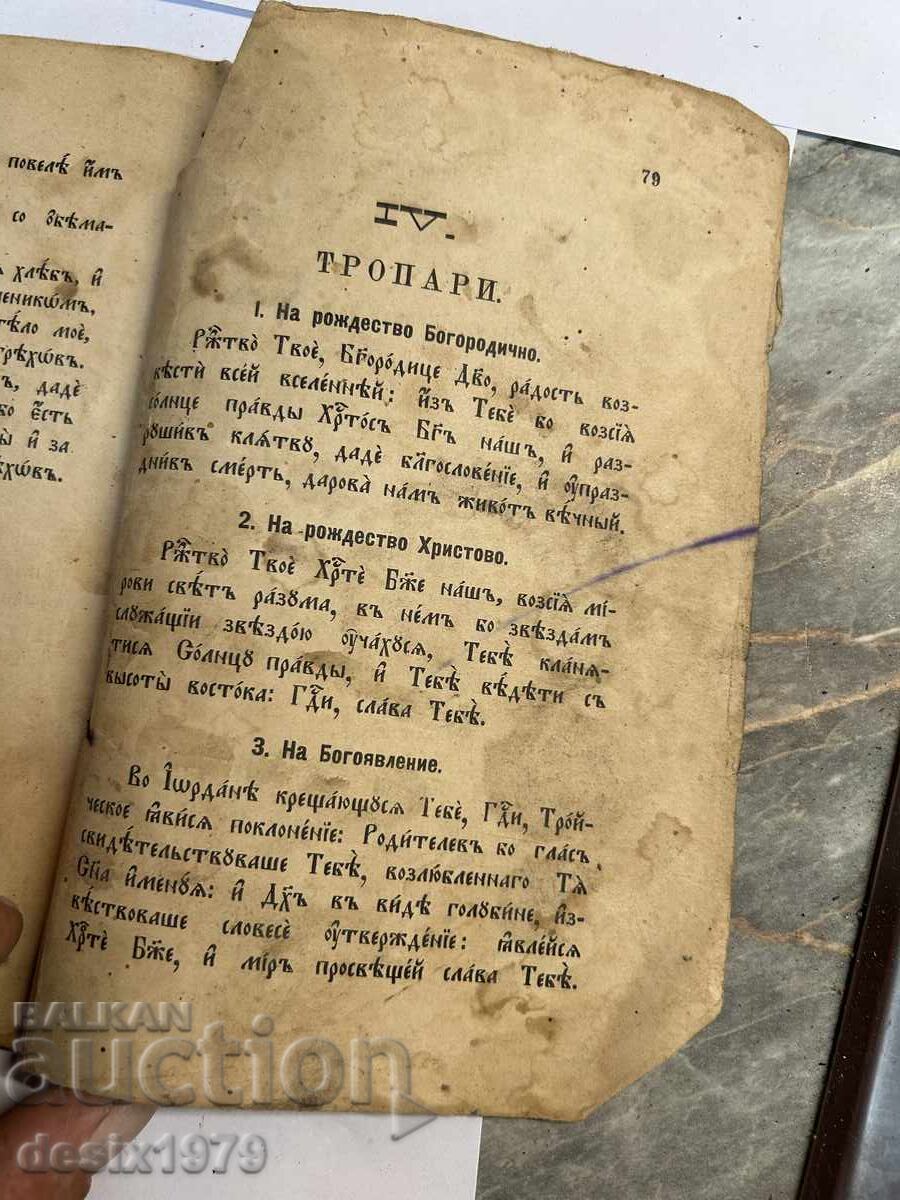 повелѣ́ и҆̀мъ
со вѣма-
хлѣ́бъ, и҆
еникѡ́мъ,
тѣ́ло моѐ,
грѣхѡ́въ.
ъ, дадѐ
бо є҆́сть
и҆ за
ѣхѡ́въ.
79
IV.
ТРОПАРИ.
1. На рождество Богородично.
Рⷤ҇тво̀ Твоѐ, Бг҃оро́дице Дв҃о, ра́дость воз-
вѣстѝ все́й вселе́ннѣй: и҆з̾ Тебѐ бо возсїѧ̀
со́лнце пра́вды Хрⷭ҇то́съ Бг҃ъ на́шъ, и҆ раз-
руши́въ клѧ́твꙋ, дадѐ блг҃ослове́нїе, и҆ ᲂу҆праз-
дни́въ сме́рть, дарова̀ на́мъ живо́тъ вѣ́чный.
2. На рождество Христово.
Рⷤ҇тво̀ Твоѐ Хрⷭ҇тѐ Бж҃е на́шъ, возсїѧ̀ мі́-
рови свѣ́тъ ра́зꙋма, въ не́мъ бо ѕвѣзда́мъ
слꙋжа́щїи ѕвѣздо́ю ᲂу҆ча́хꙋсѧ, Тебѣ̀ кла́нѧ-
тисѧ Со́лнцꙋ пра́вды, и҆ Тебѐ вѣ́дѣти съ
высоты̀ восто́ка: Гдⷭ҇и, сла́ва Тебѣ̀.
3. На Богоявление.
Во І҆ѡрда́нѣ креща́ющꙋсѧ Тебѐ, Гдⷭ҇и, Тро́й-
ческое ꙗ҆ви́сѧ поклоне́нїе: Роди́телевъ бо гла́съ
свидѣ́тельствоваше Тебѣ̀, возлю́бленнаго Тѧ̀
Сн҃а и҆менꙋ́ѧ: и҆ Дх҃ъ въ ви́дѣ голꙋби́не, и҆з-
вѣ́ствоваше словесѐ ᲂу҆твержде́нїе: ꙗ҆вле́йсѧ
Хрⷭ҇тѐ Бж҃е, и҆ мі́ръ просвѣще́й сла́ва Тебѣ̀.
BALKAN
auction
desix1979